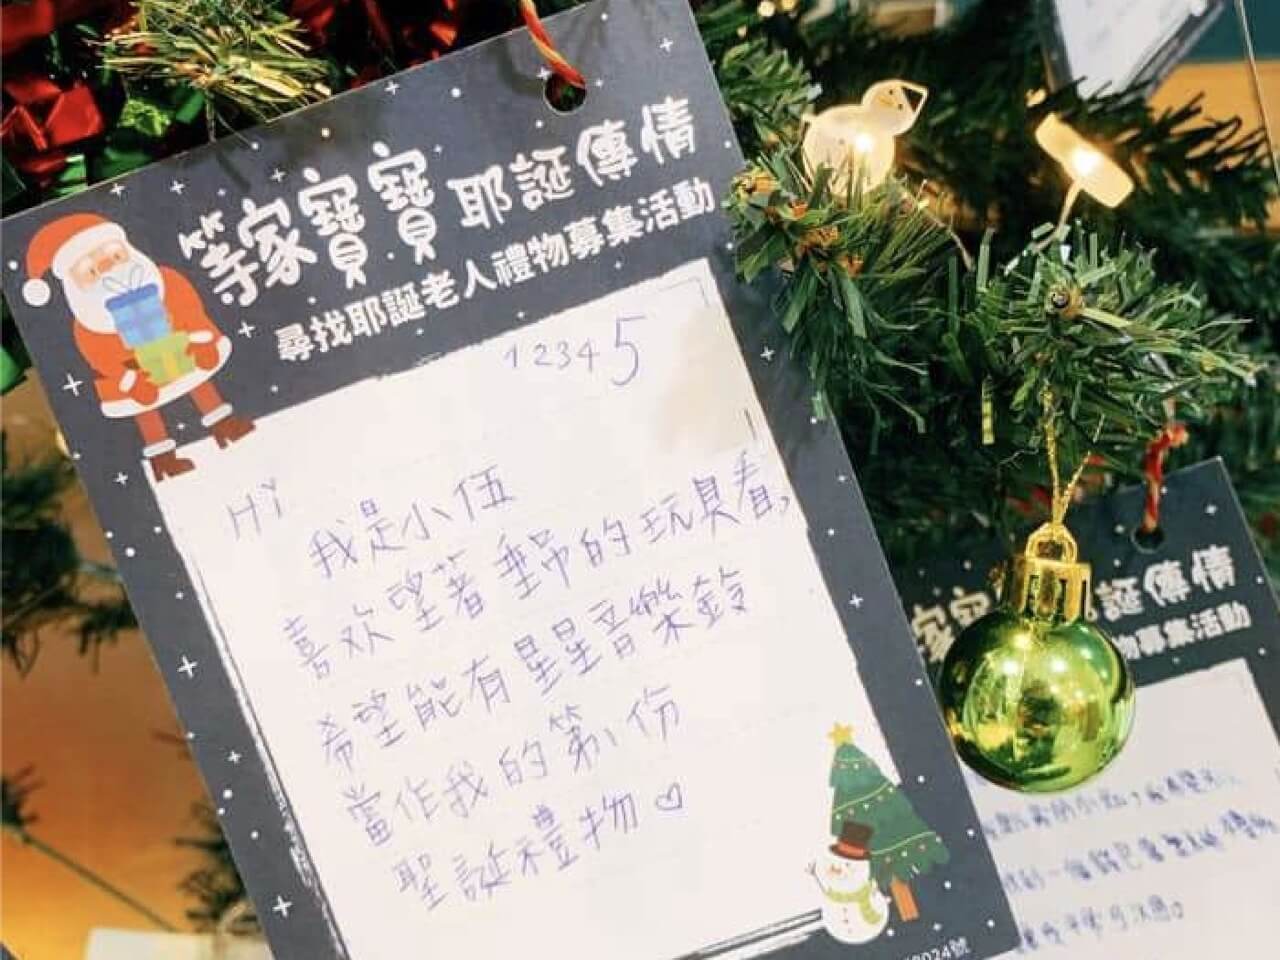 等家寶寶 耶誕傳情
尋找耶誕老人禮物募集活動
12345
Hi
我是小伍
喜欢望著垂吊的玩具看,
希望能有星星音樂鈴
當作我的第1份
聖誕禮物♡
8024號
誕傳情
物募集活動